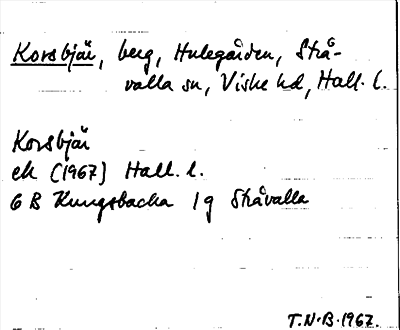 Korsbjär, berg, Hulegården, Strå-
valla sn, Viske hd, Hall. l.
Korsbjär
ek (1967) Hall. l.
6 B Kungsbacka 1 g Stråvalla
T.N.B. 1967.